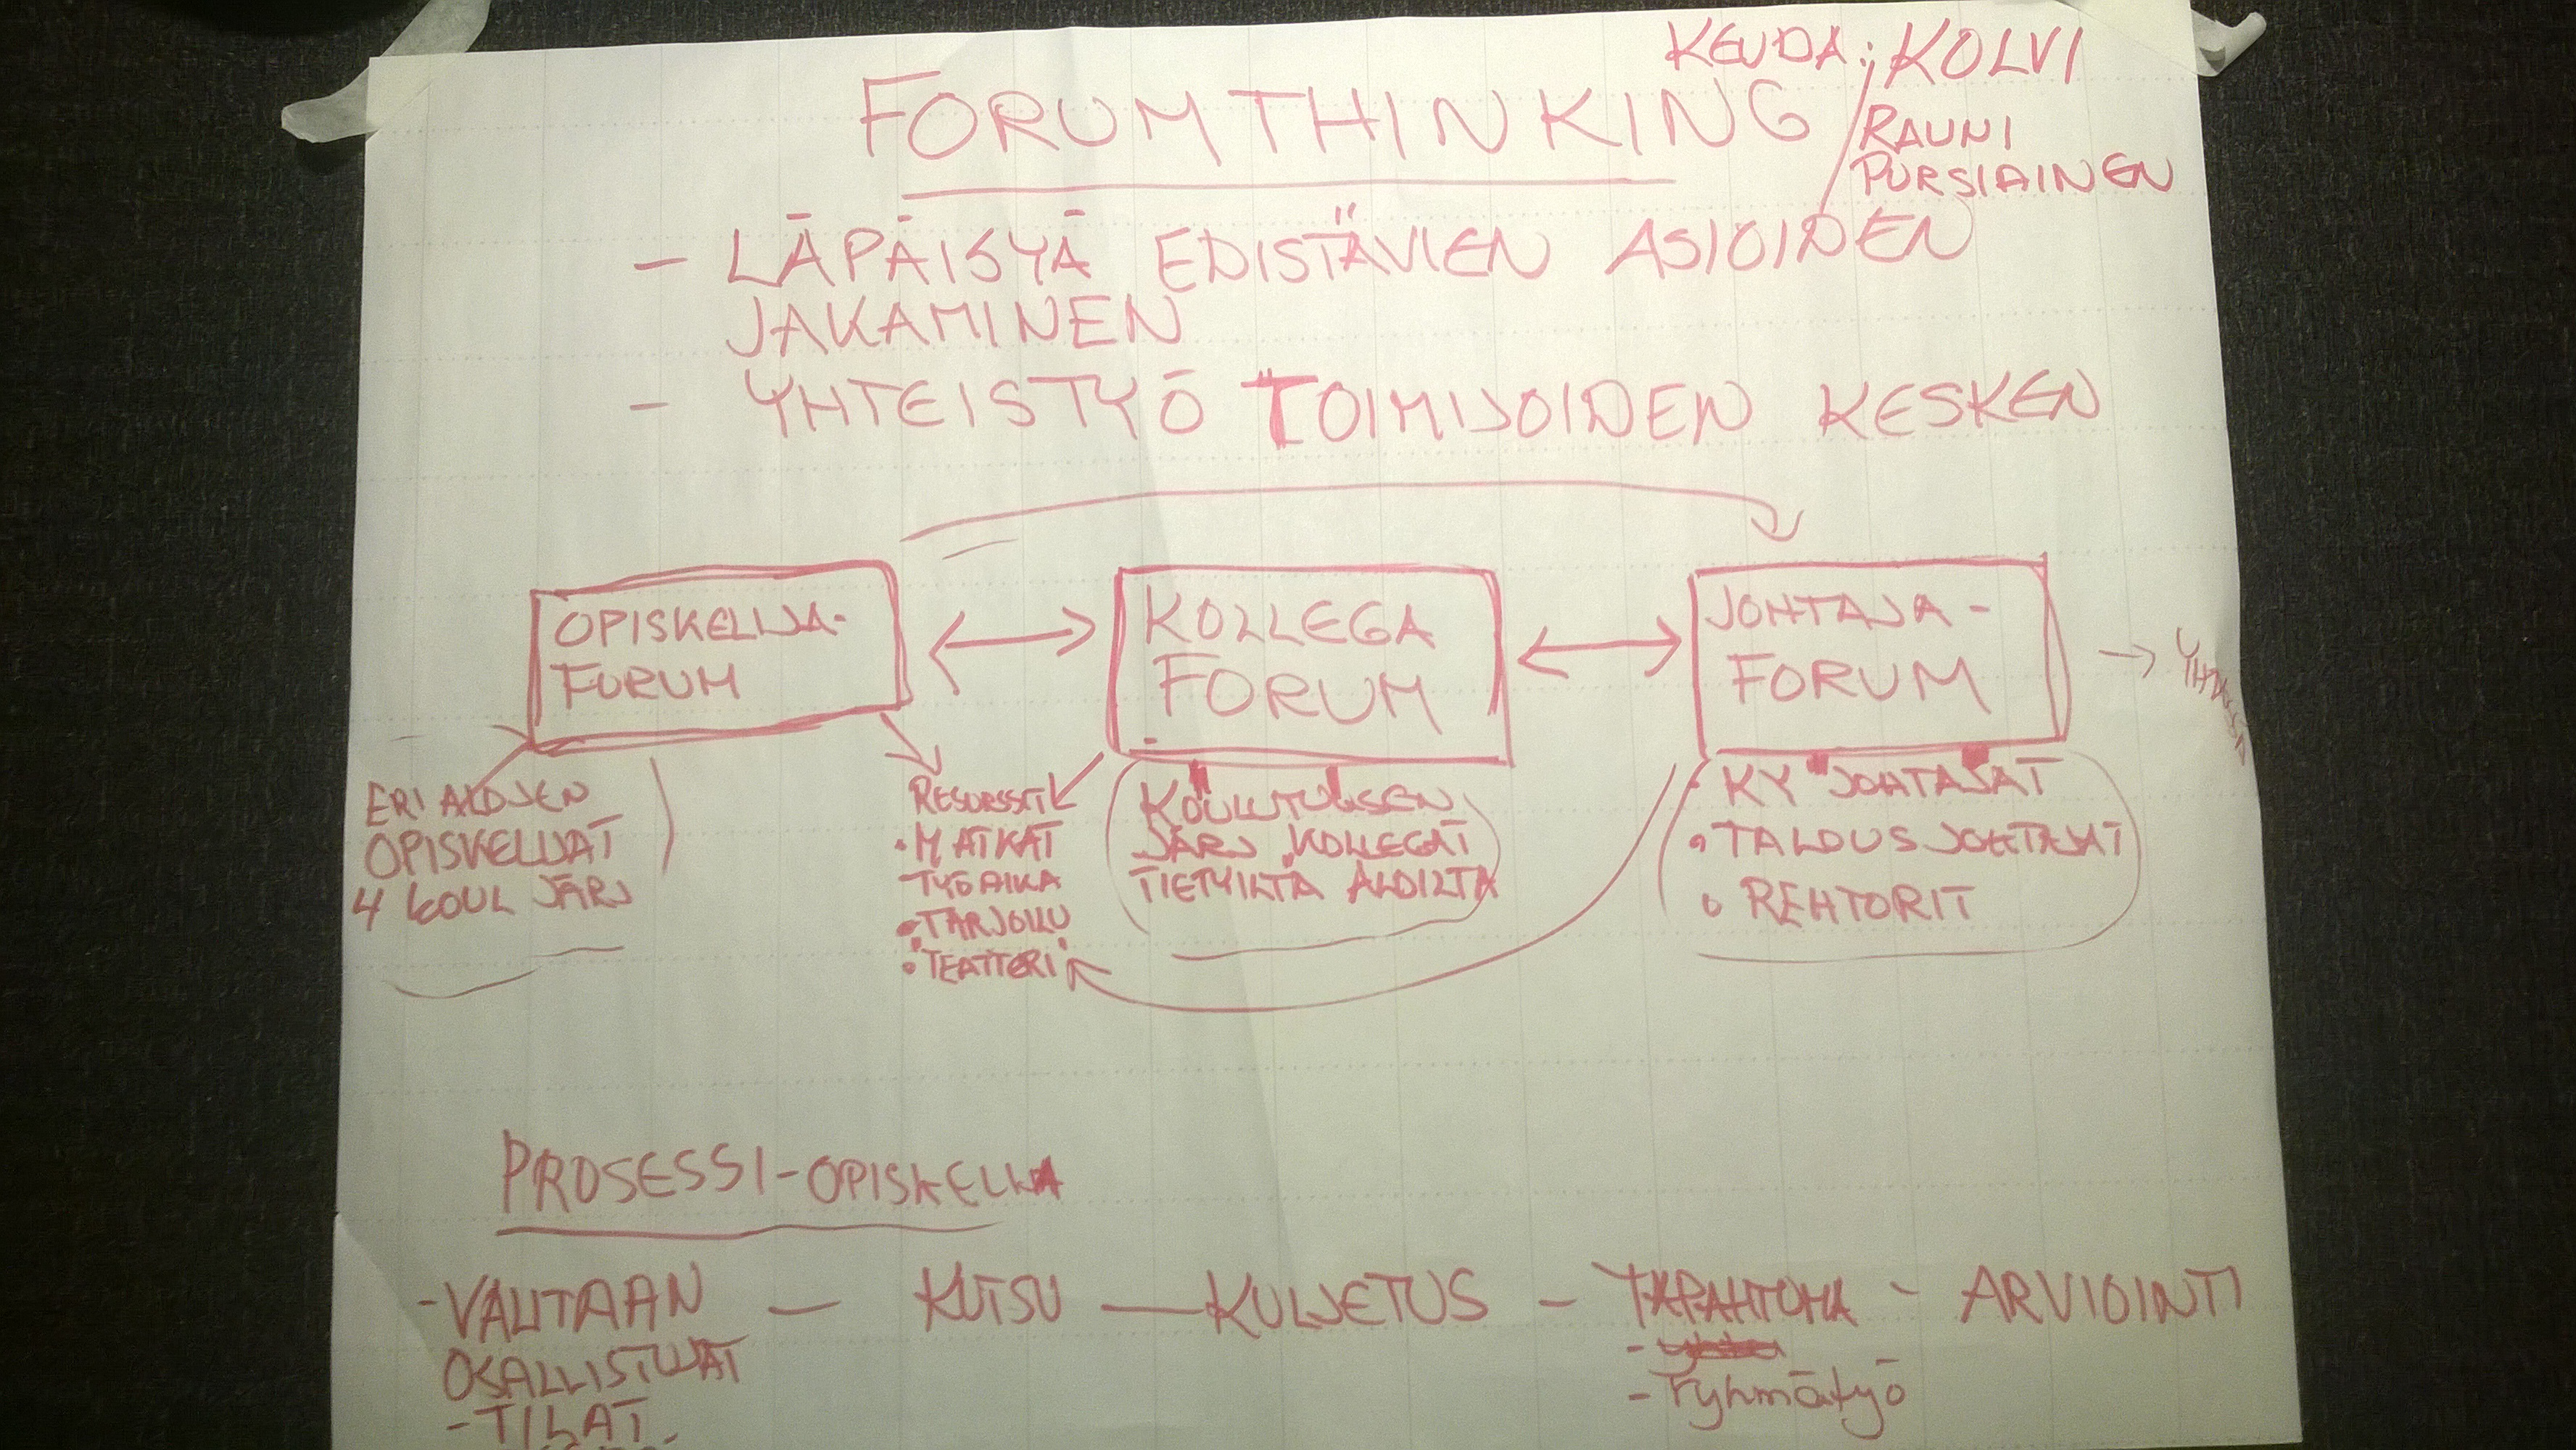 KEUDA: KOLVI
FORUMTHINKING
RAUNI
PURSIAINEN
- LÄPÄISYÄ EDISTÄVIEN ASIOIDEN
JAKAMINEN
- YHTEISTYÖ TOIMIJOIDEN KESKEN
OPISKELIJA-
FORUM
KOLLEGA
FORUM
JOHTAJA-
FORUM
ERI ALOJEN
OPISKELIJAT
4 KOUL JÄRJ
RESURSSIT
• MATKAT
TYÖAIKA
• TARJOILU
• TEATTERI
KOULUTUKSEN
JÄRJ KOLLEGAT
TIETYILTÄ ALOILTA
• KY JOHTAJAT
• TALOUSJOHTAJAT
• REHTORIT
PROSESSI-OPISKELIJA
- VALITAAN — KUTSU — KULJETUS - TAPAHTUMA - ARVIOINTI
OSALLISTUJAT
- TILAT
- Ryhmätyö